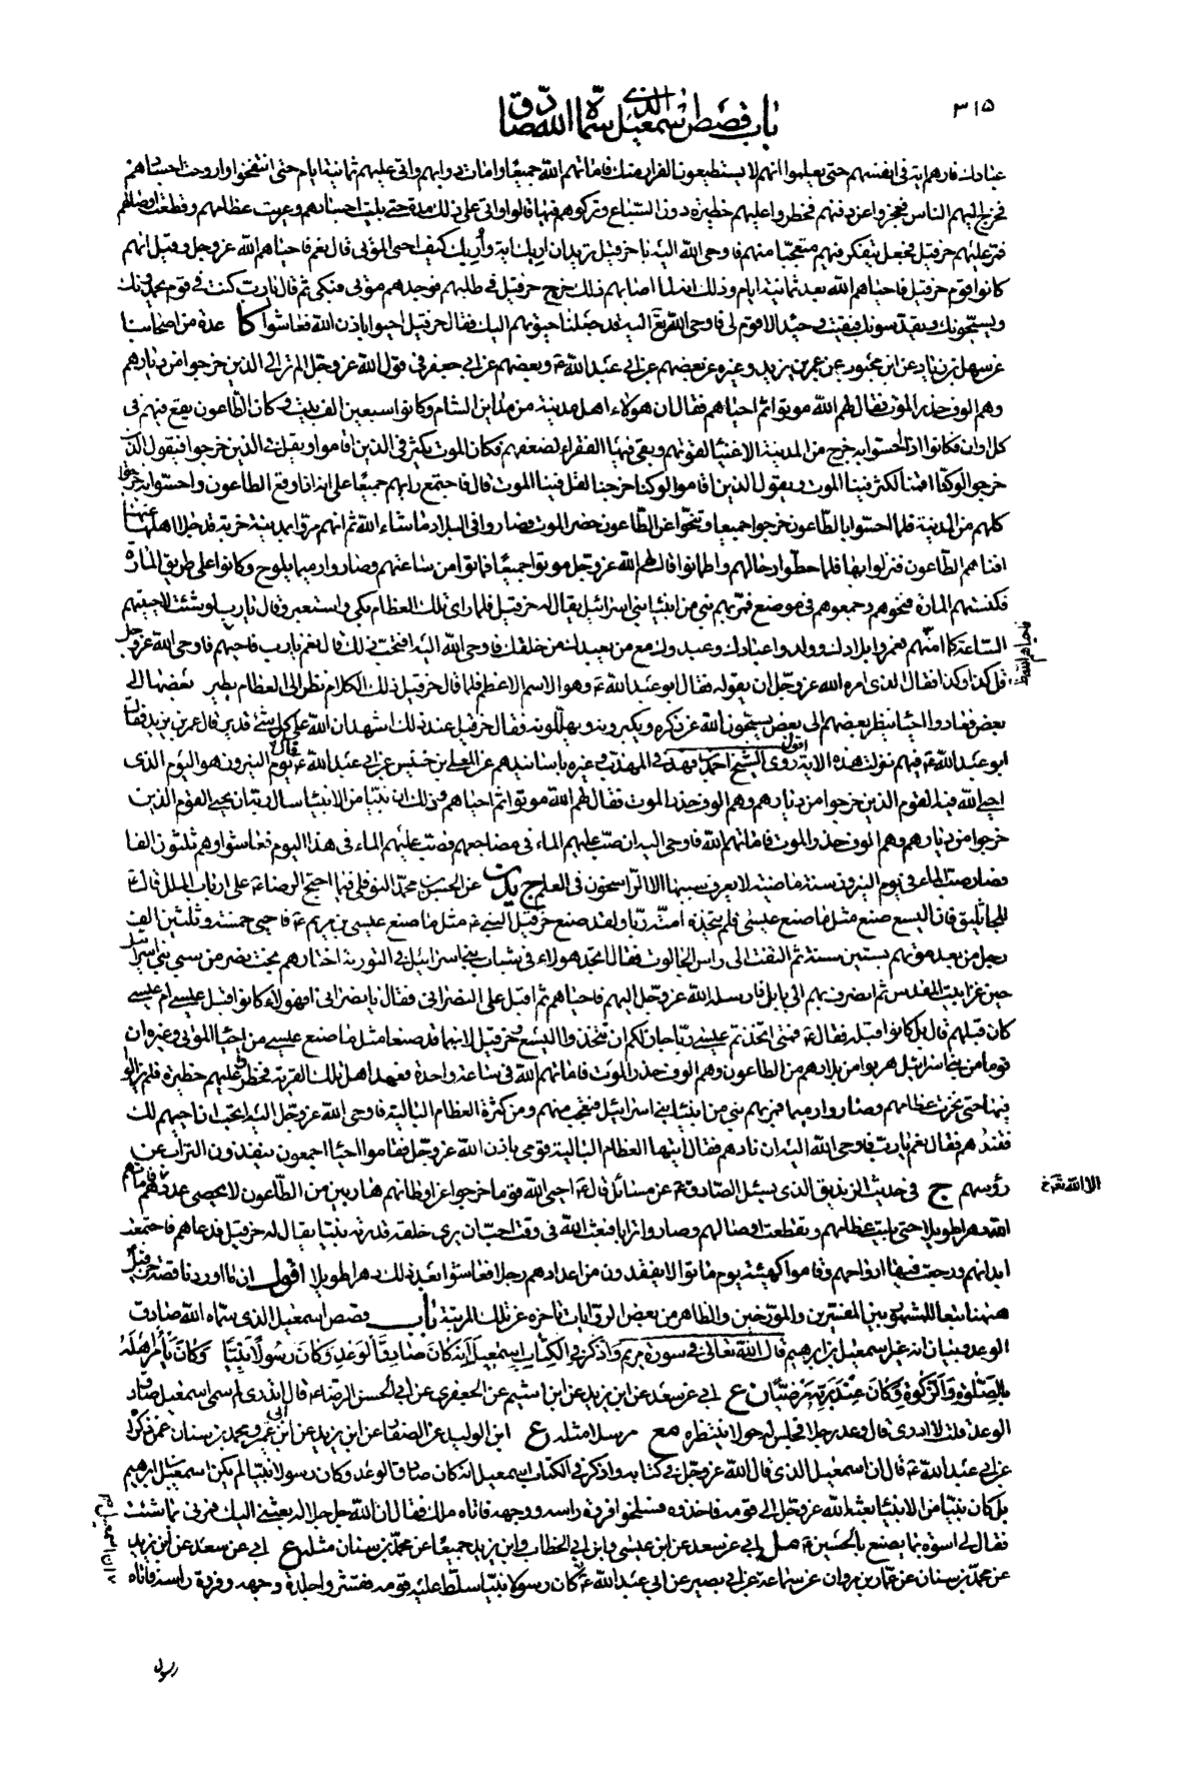 ٣١٥
باب قصص اسمعیل الذی سمّاه الله صادق
عبادك فارهم آیة فی انفسهم حتی یعلموا انهم لا یستطیعون الفرار منك فاماتهم الله جمیعا وامات دوابهم واتی علیهم ثمانیة ایام حتی انتفخوا واروحت اجسادهم
فخرج الیهم الناس فعجزوا عن دفنهم فحظروا علیهم حظیرة دون السباع وترکوهم فیها قالوا واتی علی ذلك مدة حتی بلیت اجسادهم وعریت عظامهم وقطعت اوصالهم
فمر علیهم حزقیل فجعل یتفکر فیهم متعجبا منهم فاوحی الله الیه یا حزقیل ترید ان اریك آیة واریك کیف احیی الموتی قال نعم فاحیاهم الله عز وجل وقیل انهم
کانوا قوم حزقیل فاحیاهم الله بعد ثمانیة ایام وذلك انه لما اصابهم ذلك خرج حزقیل فی طلبهم فوجدهم موتی فبکی ثم قال یا رب کنت فی قوم یحمدونك
ویسبحونك ویقدسونك فبقیت وحیدا لا قوم لی فاوحی الله تع الیه قد جعلت حیوتهم الیك فقال حزقیل احیوا باذن الله فعاشوا کا عدة من اصحابنا
عن سهل بن زیاد عن ابن محبوب عن عمر بن یزید وغیره عن بعضهم عن ابی عبد الله ع وبعضهم عن ابی جعفر فی قول الله عز وجل الم تر الی الذین خرجوا من دیارهم
وهم الوف حذر الموت فقال لهم الله موتوا ثم احیاهم فقال ان هؤلاء اهل مدینة من مداین الشام وکانوا سبعین الف بیت وکان الطاعون یقع فیهم فی
کل اوان فکانوا اذا احسوا به خرج من المدینة الاغنیاء لقوتهم وبقی فیها الفقراء لضعفهم فکان الموت یکثر فی الذین اقاموا ویقل فی الذین خرجوا فیقول الذین
خرجوا لو کنا اقمنا لکثر فینا الموت ویقول الذین اقاموا لو کنا خرجنا لقل فینا الموت قال فاجتمع رایهم جمیعا علی انه اذا وقع الطاعون واحسوا به خرجوا
کلهم من المدینة فلما احسوا بالطاعون خرجوا جمیعا وتنحوا عن الطاعون حذر الموت فصاروا فی البلاد ما شاء الله ثم انهم مروا بمدینة خربة قد جلا اهلها عنها
افناهم الطاعون فنزلوا بها فلما حطوا رحالهم واطمانوا قال لهم الله عز وجل موتوا جمیعا فماتوا من ساعتهم وصاروا رمیما یلوح وکانوا علی طریق المارة
فکنستهم المارة فنحوهم وجمعوهم فی موضع فمر بهم نبی من انبیاء بنی اسرائیل یقال له حزقیل فلما رای تلك العظام بکی واستعبر وقال یا رب لو شئت لاحییتهم
الساعة کما امتهم فعمروا بلادك وولدوا عبادك وعبدوك مع من یعبدك من خلقك فاوحی الله الیه افتحب ذلك قال نعم یا رب فاحیهم فاوحی الله عز وجل
قل کذا وکذا فقال الذی امره الله عز وجل ان یقوله فقال ابو عبد الله ع وهو الاسم الاعظم فلما قال حزقیل ذلك الکلام نظر الی العظام یطیر بعضها الی
بعض فعادوا احیاء ینظر بعضهم الی بعض یسبحون الله عز ذکره ویکبرونه ویهللونه فقال حزقیل عند ذلك اشهد ان الله علی کل شئ قدیر قال عمر بن یزید فقال
ابو عبد الله ع فیهم نزلت هذه الایة اقول روی الشیخ احمد بن فهد فی المهذب وغیره باسانیدهم عن المعلی بن خنیس عن ابی عبد الله ع قال یوم النیروز هو الیوم الذی
احیی الله فیه القوم الذین خرجوا من دیارهم وهم الوف حذر الموت فقال لهم الله موتوا ثم احیاهم وذلك ان نبیا من الانبیاء سال ربه ان یحیی القوم الذین
خرجوا من دیارهم وهم الوف حذر الموت فاماتهم الله فاوحی الیه ان صب علیهم الماء فی مضاجعهم فصب علیهم الماء فی هذا الیوم فعاشوا وهم ثلثون الفا
فصار صب الماء فی یوم النیروز سنة ماضیة لا یعرف سببها الا الراسخون فی العلم ج ید ن عن الحسن بن محمد النوفلی فیما احتج الرضا ع علی ارباب الملل قال ع
للجاثلیق فان الیسع صنع مثل ما صنع عیسی فلم یتخذه امته ربا ولقد صنع حزقیل النبی ع مثل ما صنع عیسی بن مریم ع فاحیی خمسة وثلثین الف
رجل من بعد موتهم بستین سنة ثم التفت الی راس الجالوت فقال اتجد هؤلاء فی شباب بنی اسرائیل فی التوریة اختارهم بخت نصر من سبی بنی اسرائیل
حین غزا بیت المقدس ثم انصرف بهم الی بابل فارسله الله عز وجل الیهم فاحیاهم ثم اقبل علی النصرانی فقال یا نصرانی افهؤلاء کانوا قبل عیسی ام عیسی
کان قبلهم قال بل کانوا قبله فقال ع فمتی اتخذتم عیسی ربا جاز لکم ان تتخذوا الیسع وحزقیل لانهما قد صنعا مثل ما صنع عیسی من احیاء الموتی وغیره ان
قوما من بنی اسرائیل هربوا من بلادهم من الطاعون وهم الوف حذر الموت فاماتهم الله فی ساعة واحدة فعمد اهل تلك القریة فحظروا علیهم حظیرة فلم یزالوا
فیها حتی نخرت عظامهم وصاروا رمیما فمر بهم نبی من انبیاء بنی اسرائیل فتعجب منهم ومن کثرة العظام البالیة فاوحی الله عز وجل الیه اتحب ان احییهم لك
فتنذرهم فقال نعم یا رب فاوحی الله الیه ان نادهم فقال ایتها العظام البالیة قومی باذن الله عز وجل فقاموا احیاء اجمعون ینفضون التراب عن
رؤسهم ج فی حدیث الزندیق الذی یسئل الصادق ع عن مسائل قال ع احیی الله قوما خرجوا عن اوطانهم هاربین من الطاعون لا یحصی عددهم فاماتهم
الله دهرا طویلا حتی بلیت عظامهم وتقطعت اوصالهم وصاروا ترابا فبعث الله فی وقت احب ان یری خلقه قدرته نبیا یقال له حزقیل فدعاهم فاجتمعت
ابدانهم ورجعت فیها ارواحهم وقاموا کهیئة یوم ماتوا لا یفقدون من اعدادهم رجلا فعاشوا بعد ذلك دهرا طویلا اقول انما اوردنا قصة حزقیل
ههنا تبعا للمشهور بین المفسرین والمورخین والظاهر من بعض الروایات تاخره عن تلك المرتبة باب قصص اسمعیل الذی سماه الله صادق
الوعد وبیان انه غیر اسمعیل بن ابراهیم قال الله تعالی فی سورة مریم وَاذْکُرْ فِی الْکِتَابِ اِسْمعیلَ اِنَّهُ کَانَ صَادِقَ الْوَعْدِ وَکَانَ رَسُولًا نَبِیًّا وَکَانَ یَأْمُرُ اَهْلَهُ
بِالصَّلٰوةِ وَالزَّکٰوةِ وَکَانَ عِنْدَ رَبِّهِ مَرْضِیًّا ن ع ابی عن سعد عن ابن یزید عن ابن اشیم عن الجعفری عن ابی الحسن الرضا ع قال اتدری لم سمی اسمعیل صادق
الوعد قلت لا ادری قال وعد رجلا فجلس له حولا ینتظره مع مرسلا مثله ع ابن الولید عن الصفار عن ابن یزید عن ابن ابی عمیر ومحمد بن سنان عمن ذکره
عن ابی عبد الله ع قال ان اسمعیل الذی قال الله عز وجل فی کتابه واذکر فی الکتاب اسمعیل انه کان صادق الوعد وکان رسولا نبیا لم یکن اسمعیل بن ابرهیم
بل کان نبیا من الانبیاء بعثه الله عز وجل الی قومه فاخذوه فسلخوا فروة راسه ووجهه فاتاه ملك فقال ان الله جل جلاله بعثنی الیك فمرنی بما شئت
فقال لی اسوة بما یصنع بالحسین ع مل ابی عن سعد عن ابن عیسی وابن ابی الخطاب وابن یزید جمیعا عن محمد بن سنان مثله ع ابی عن سعد عن ابن یزید
عن محمد بن سنان عن عمار بن مروان عن سماعة عن ابی بصیر عن ابی عبد الله ع ان اسمعیل کان رسولا نبیا سلط علیه قومه فقشروا جلدة وجهه وفروة راسه فاتاه
رسول